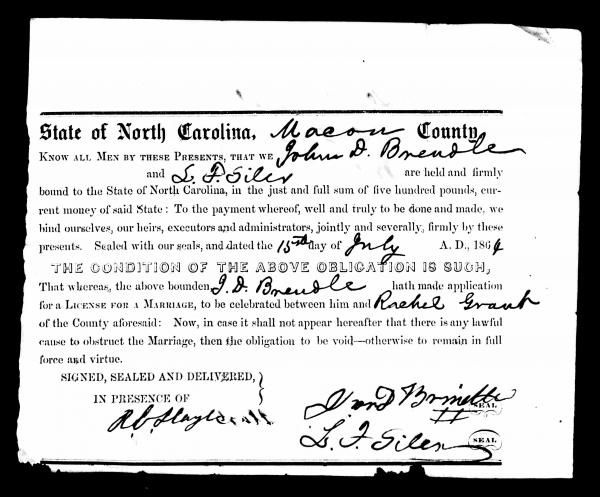 State of North Carolina, Macon County
KNOW ALL MEN BY THESE PRESENTS, THAT WE John D. Brendle
and L. F. Siler are held and firmly
bound to the State of North Carolina, in the just and full sum of five hundred pounds, cur-
rent money of said State: To the payment whereof, well and truly to be done and made, we
bind ourselves, our heirs, executors and administrators, jointly and severally, firmly by these
presents. Sealed with our seals, and dated the 15th day of July A. D., 186
THE CONDITION OF THE ABOVE OBLIGATION IS SUCH,
That whereas, the above bounden J. D. Brendle hath made application
for a LICENSE FOR A MARRIAGE, to be celebrated between him and Rachel Grant
of the County aforesaid: Now, in case it shall not appear hereafter that there is any lawful
cause to obstruct the Marriage, then the obligation to be void—otherwise to remain in full
force and virtue.
SIGNED, SEALED AND DELIVERED,
IN PRESENCE OF
SEAL
L. F. Siler SEAL